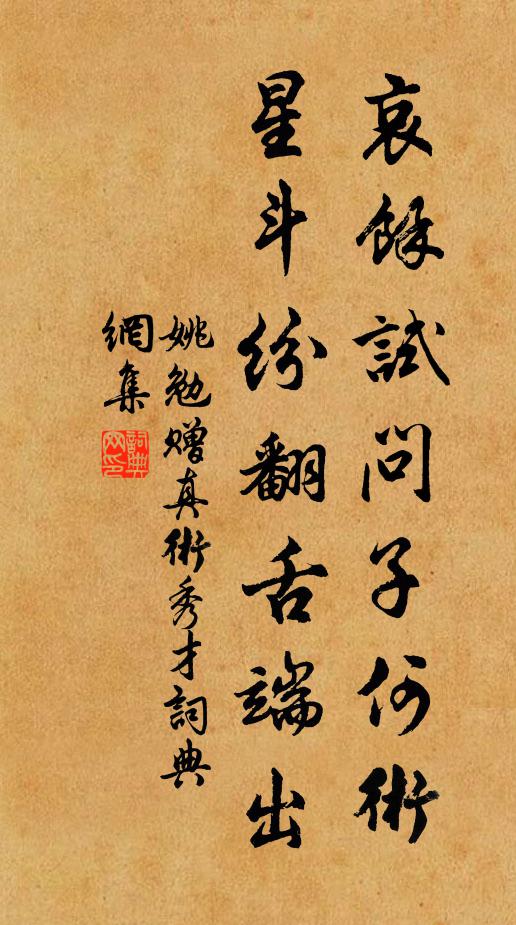 哀餘試問子何術
星斗紛翻舌端出
姚勉贈真術秀才詞典
網集
詞典網印